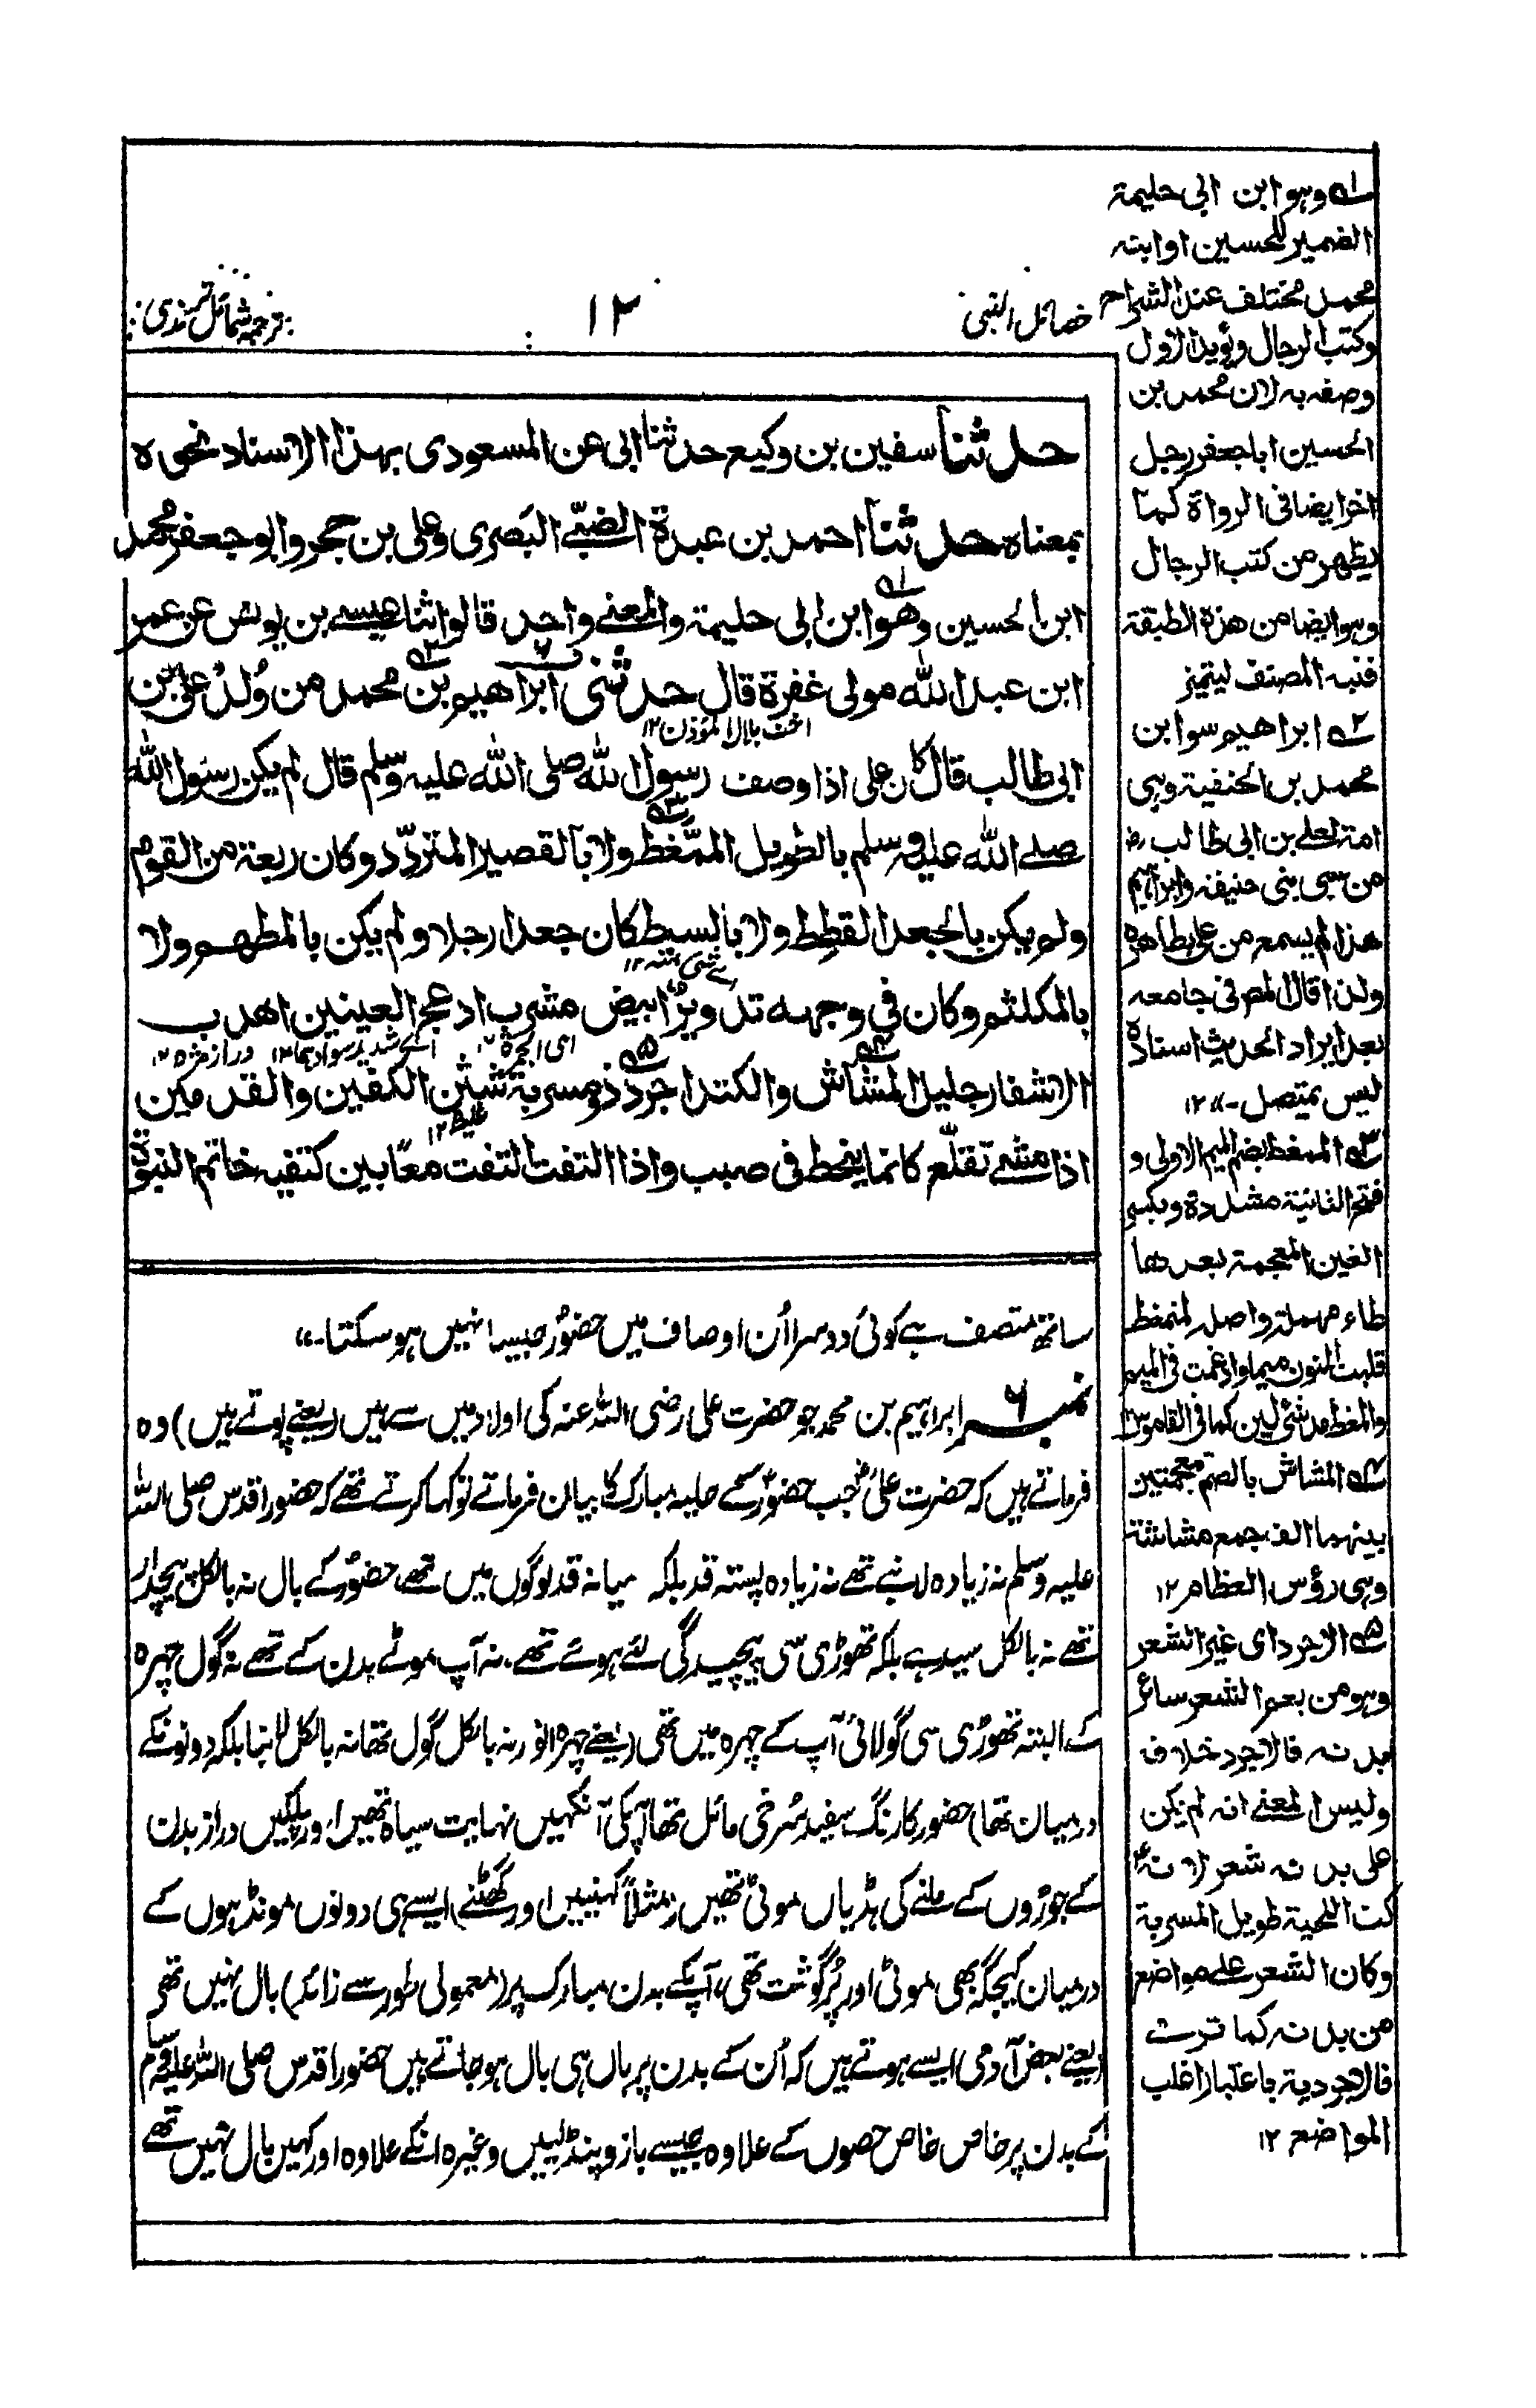 خصائل النبی
۱۲
ترجمہ شمائل ترمذی
حدثنا سفین بن وکیع حدثنا ابی عن المسعودی بهذا الاسناد نحوه
بمعناه حدثنا احمد بن عبدة الضبّے البَصری وعلی بن حجر وابو جعفر محمد
ابن الحسین وهوا بن ابی حلیمة والمعنے واحد قالوا ثنا عیسے بن یونس عن عمر
ابن عبد الله مولی غفرة قال حدثنی ابراهیم بن محمد من وُلد علی بن
اخت بلال المؤذن ۱۲
ابی طالب قال کان علی اذا وصف رسول الله صلی الله علیه وسلم قال لم یکن رسول الله
صلے الله علیه وسلم بالطویل الممّغط ولا بالقصیر المتردّد وکان ربعة من القوم
ولم یکن بالجعد القطط ولا بالسبط کان جعدا رجلا ولم یکن بالمطهم ولا
اے شئ منه ۱۲
بالمکلثم وکان فی وجهه تدویرٌ ابیض مشرب ادعج العینین اهدب
ای الحمرة ۱۲ اے شدید سوادهما ۱۲ دراز مژه ۱۲
الاشفار جلیل المشاش والکتد اجرد ذو مسربة شثن الکفین والقدمین
غلیظ ۱۲
اذا مشے تقلّع کانما ینحط فی صبب واذا التفت التفت معًا بین کتفیه خاتم النبوة
ساتھ متصف ہے کوئی دوسرا اُن اوصاف میں حضورؐ جیسا نہیں ہوسکتا۔،،
نمبر ۶ ابراہیم بن محمد جو حضرت علی رضی اللہ عنہ کی اولاد میں سے ہیں (یعنے پوتے ہیں) وہ
فرماتے ہیں کہ حضرت علیؓ جب حضورؐ کے حلیہ مبارک کا بیان فرماتے تو کہا کرتے تھے کہ حضور اقدس صلی اللہ
علیہ وسلم نہ زیادہ لانبے تھے نہ زیادہ پستہ قد بلکہ میانہ قد لوگوں میں تھے، حضورؐ کے بال نہ بالکل پیچدار
تھے نہ بالکل سیدہے بلکہ تھوڑی سی پیچیدگی لئے ہوئے تھے، نہ آپ موٹے بدن کے تھے نہ گول چہرہ
کے البتہ تھوڑی سی گولائی آپ کے چہرہ میں تھی (یعنے چہرہ انور نہ بالکل گول تھا نہ بالکل لانبا بلکہ دونونکے
درمیان تھا) حضور کا رنگ سفید سُرخی مائل تھا آپکی آنکہیں نہایت سیاہ تھیں، اور پلکیں دراز بدن
کے جوڑوں کے ملنے کی ہڈیاں موٹی تھیں (مثلاً کہنییں اور گھٹنے) ایسے ہی دونوں مونڈہوں کے
درمیان کیجگہ بھی موٹی اور پُرگوشت تھی، آپکے بدن مبارک پر (معمولی طور سے زائد) بال نہیں تھے
(یعنے بعض آدمی ایسے ہوتے ہیں کہ اُن کے بدن پر بال ہی بال ہوجاتے ہیں حضور اقدس صلی اللہ علیہ وسلم
کے بدن پر خاص خاص حصوں کے علاوہ جیسے بازو پنڈلییں وغیرہ انکے علاوہ اور کہیں بال نہیں تھے
۱ وہو ابن ابی حلیمة
الضمیر للحسین او ابنه
محمد مختلف عند الشراح
وکتب الرجال ویؤید الاول
وصفه به لان محمد بن
الحسین ابا جعفر رجل
اخر ایضا فی الرواة کما
یظهر من کتب الرجال
وہو ایضا من هذه الطبقة
فنبه المصنف لیتمیز
۲ ابراهیم ہو ابن
محمد بن الحنفیة وہی
امة لعلے بن ابی طالب رض
من سبی بنی حنیفه وابراہیم
هذا لم یسمع من علی بطاهره
ولذا قال المص فی جامعه
بعد ایراد الحدیث اسناده
لیس بمتصل۔،، ۱۲
۳ الممغط بضم المیم الاولی و
فتح الثانیة مشددة وبکسر
الغین المعجمة بعدها
طاء مهملة واصله المنمغط
قلبت النون میما وادغمت فی المیم
والمغط مد شئ لین کما فی القاموس ۱۲
۴ المشاش بالضم بمعجمتین
بینهما الف جمع مشاشة
وہی رؤس العظام ۱۲
۵ الاجرد ای غیر اشعر
وہو من یعم الشعر سائر
بدنه فالاجرد خلافه
ولیس المعنے انه لم یکن
علی بدنه شعر لانه
کث اللحیة طویل المسربة
وکان الشعر علے مواضع
من بدنه کما ترے
فالاجردیة باعتبار اغلب
المواضع ۱۲